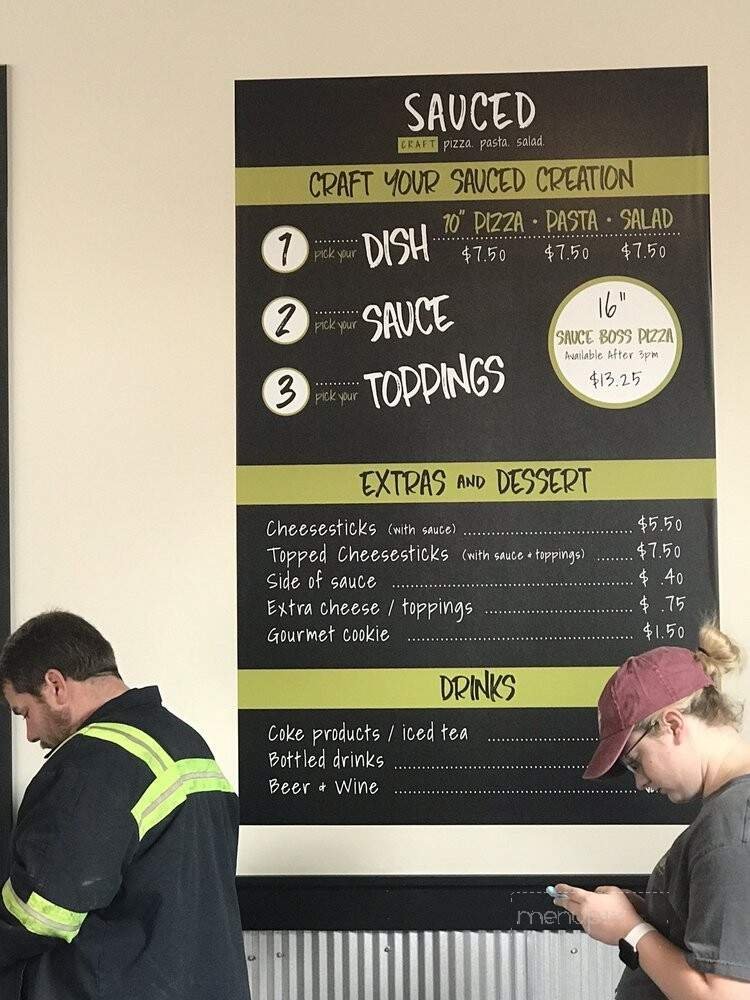 SAUCED
CRAFT pizza. pasta. salad.
CRAFT YOUR SAUCED CREATION
1 pick your DISH
10" PIZZA · PASTA · SALAD
$7.50 $7.50 $7.50
2 pick your SAUCE
3 pick your TOPPINGS
16"
SAUCE BOSS PIZZA
Available After 3pm
$13.25
EXTRAS AND DESSERT
Cheesesticks (with sauce) $5.50
Topped Cheesesticks (with sauce + toppings) $7.50
Side of sauce $ .40
Extra cheese / toppings $ .75
Gourmet cookie $1.50
DRINKS
Coke products / iced tea
Bottled drinks
Beer + Wine